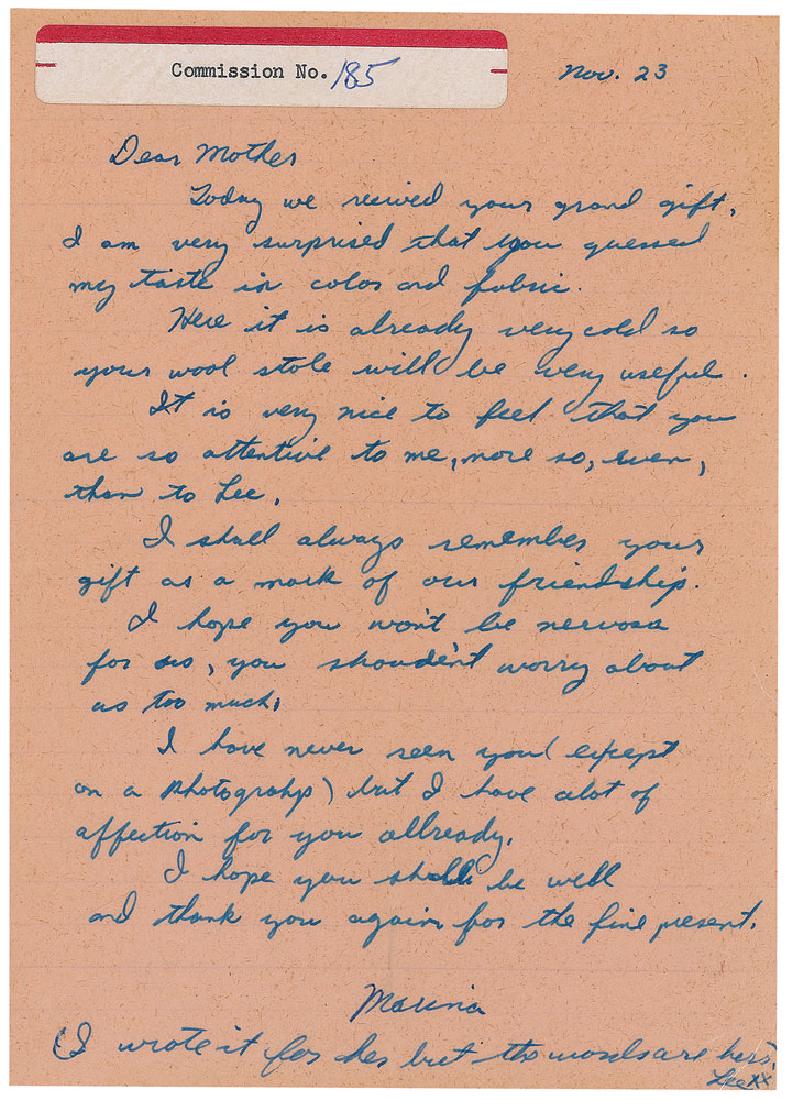 Commission No. 185
Nov. 23
Dear Mother
Today we recived your grand gift,
I am very surprised that you guessed
my taste in color and fabric.
Here it is already very cold so
your wool stole will be very useful.
It is very nice to feel that you
are so attentive to me, more so, even,
than to Lee.
I shall always remember your
gift as a mark of our friendship.
I hope you won't be nervose
for us, you shoulde'nt worry about
us too much,
I have never seen you (except
on a photograhps) but I have alot of
affection for you allready.
I hope you shall be well
and thank you again for the fine present.
Marina
(I wrote it for her but the words are hers.
Lee xx